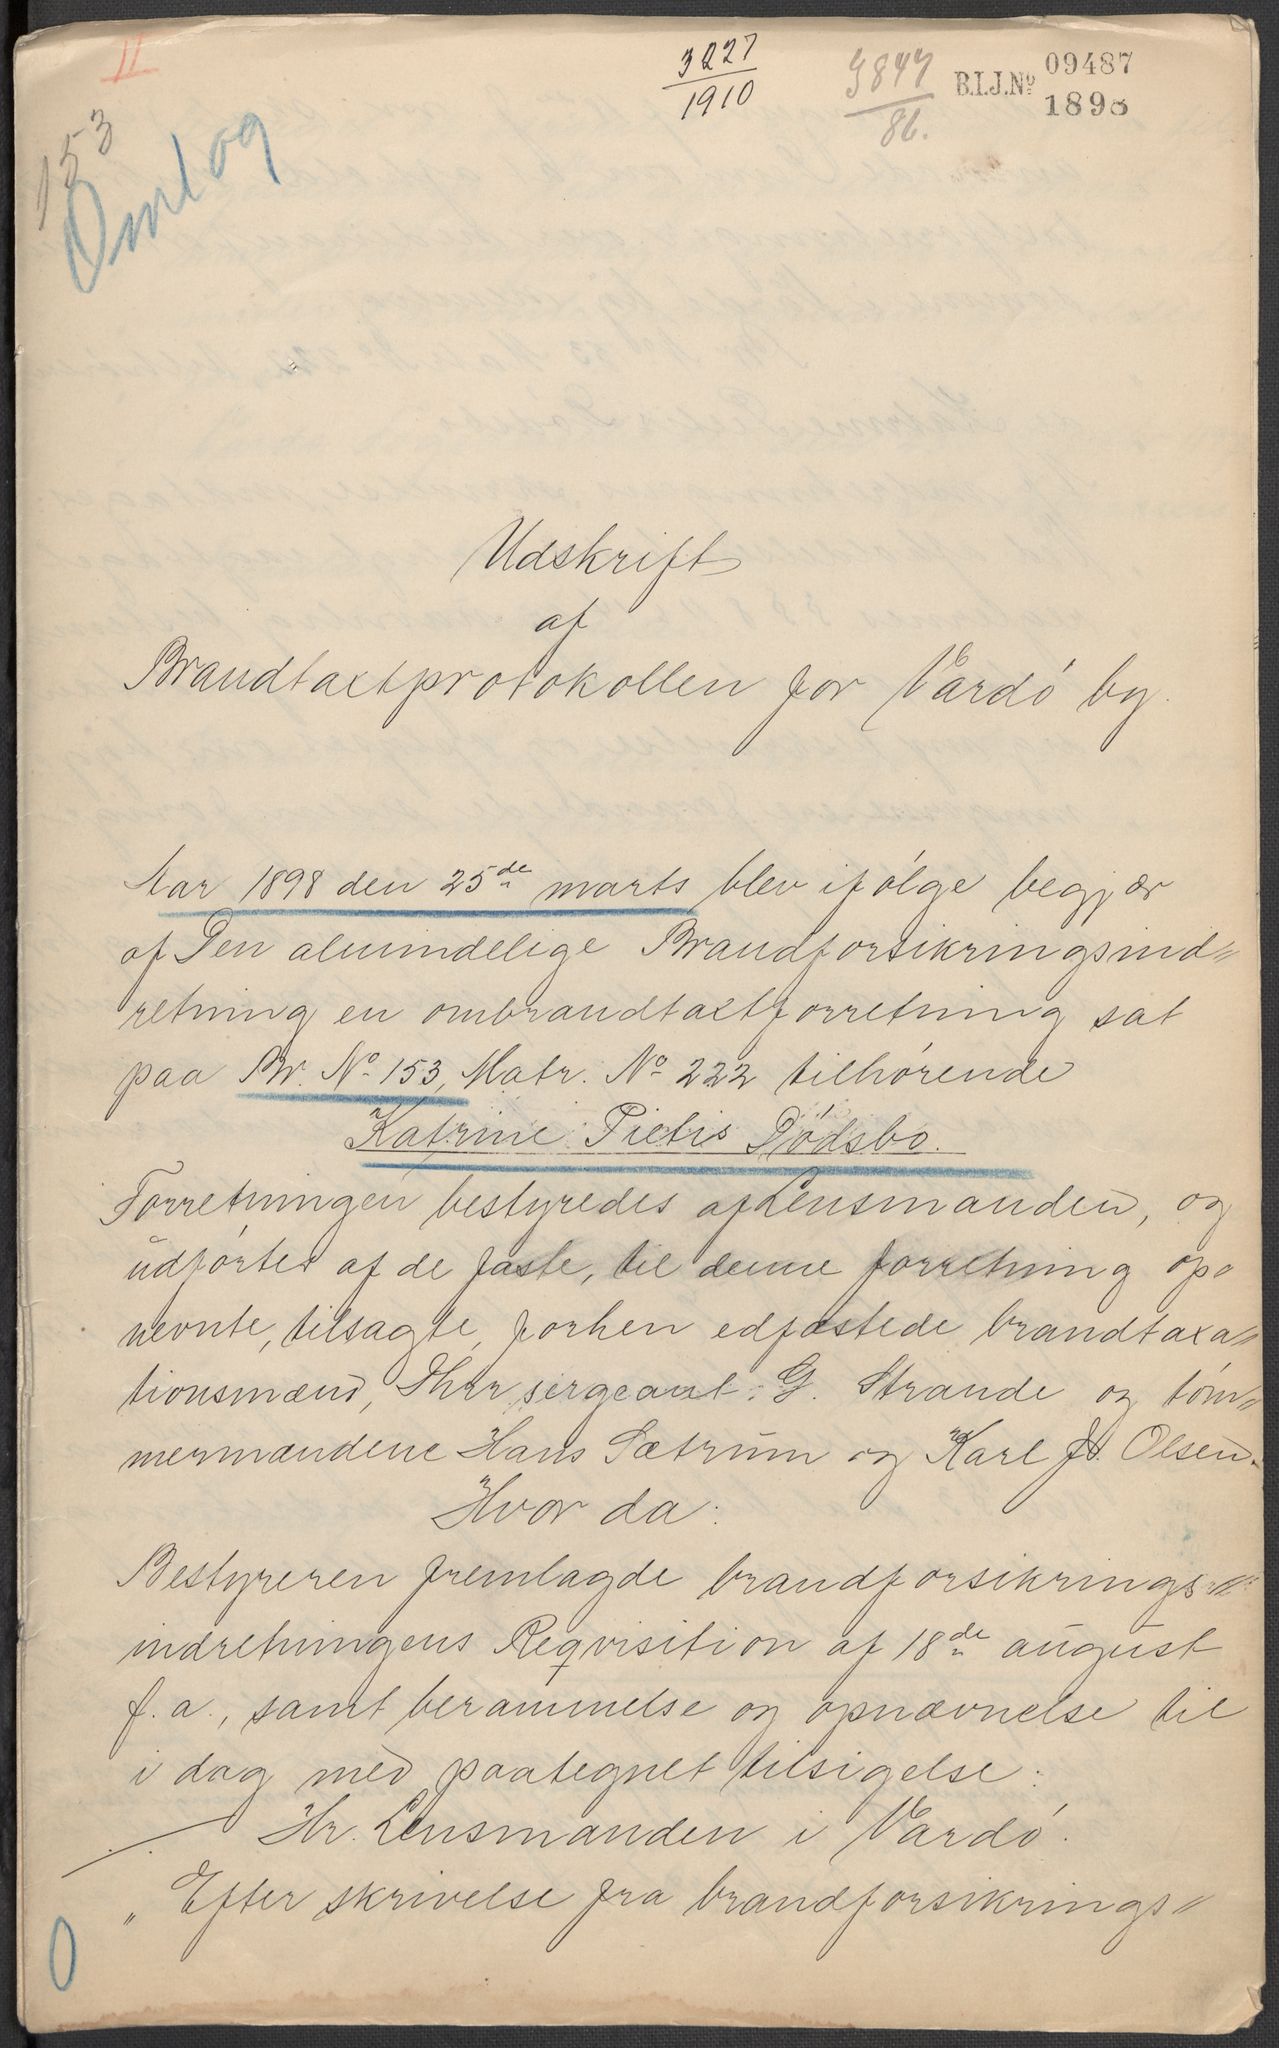 II
3227
1910
3847
86.
B.I.J.No 09487
1898
153
Omlag
Udskrift
af
Brandtaxtprotokollen for Vardö by.
Aar 1898 den 25de marts blev ifølge begjær
af Den almindelige Brandforsikringsind„
retning en ombrandtaxtforretning sat
paa Br. No 153, Matr. No 222 tilhørende
Katrine Pietis Dödsbo.
Forretningen bestyredes af Lensmanden, og
udførtes af de faste, til denne forretning op„
nevnte, tilsagte, forhen edfæstede brandtaxa„
tionsmænd, Dhrr sergeant G. Strande og töm„
mermændene Hans Sætrum og Karl Js. Olsen.
Hvor da:
Bestyreren fremlagde brandforsikrings„
indretningens Reqvisition af 18de august
f. a., samt berammelse og opnævnelse til
i dag med paategnet tilsigelse:
Hr. Lensmanden i Vardö.
„Efter skrivelse fra brandforsikrings„
0